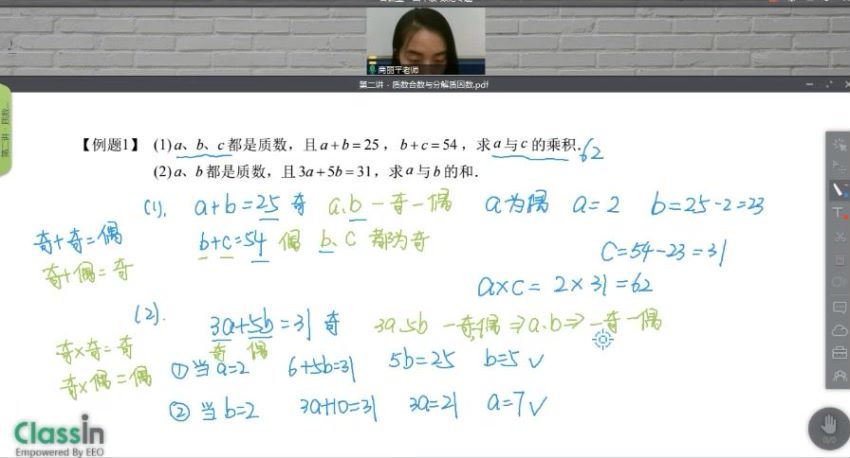 商丽平老师
第二讲 - 质数合数与分解质因数.pdf
【例题1】 (1)a、b、c都是质数，且a+b=25，b+c=54，求a与c的乘积. 62
(2)a、b都是质数，且3a+5b=31，求a与b的和.
(1). a+b=25 奇 a、b 一奇一偶 a为偶 a=2 b=25-2=23
奇+奇=偶 b+c=54 偶 b、c 都为奇
奇+偶=奇 c=54-23=31
a×c= 2×31=62
(2). 3a+5b=31 奇 3a、5b 一奇一偶⇒a、b⇒一奇一偶
奇×奇=奇 奇 偶
奇×偶=偶 ①当a=2 6+5b=31 5b=25 b=5✓
②当b=2 3a+10=31 3a=21 a=7✓
ClassIn
Empowered By EEO
0/0